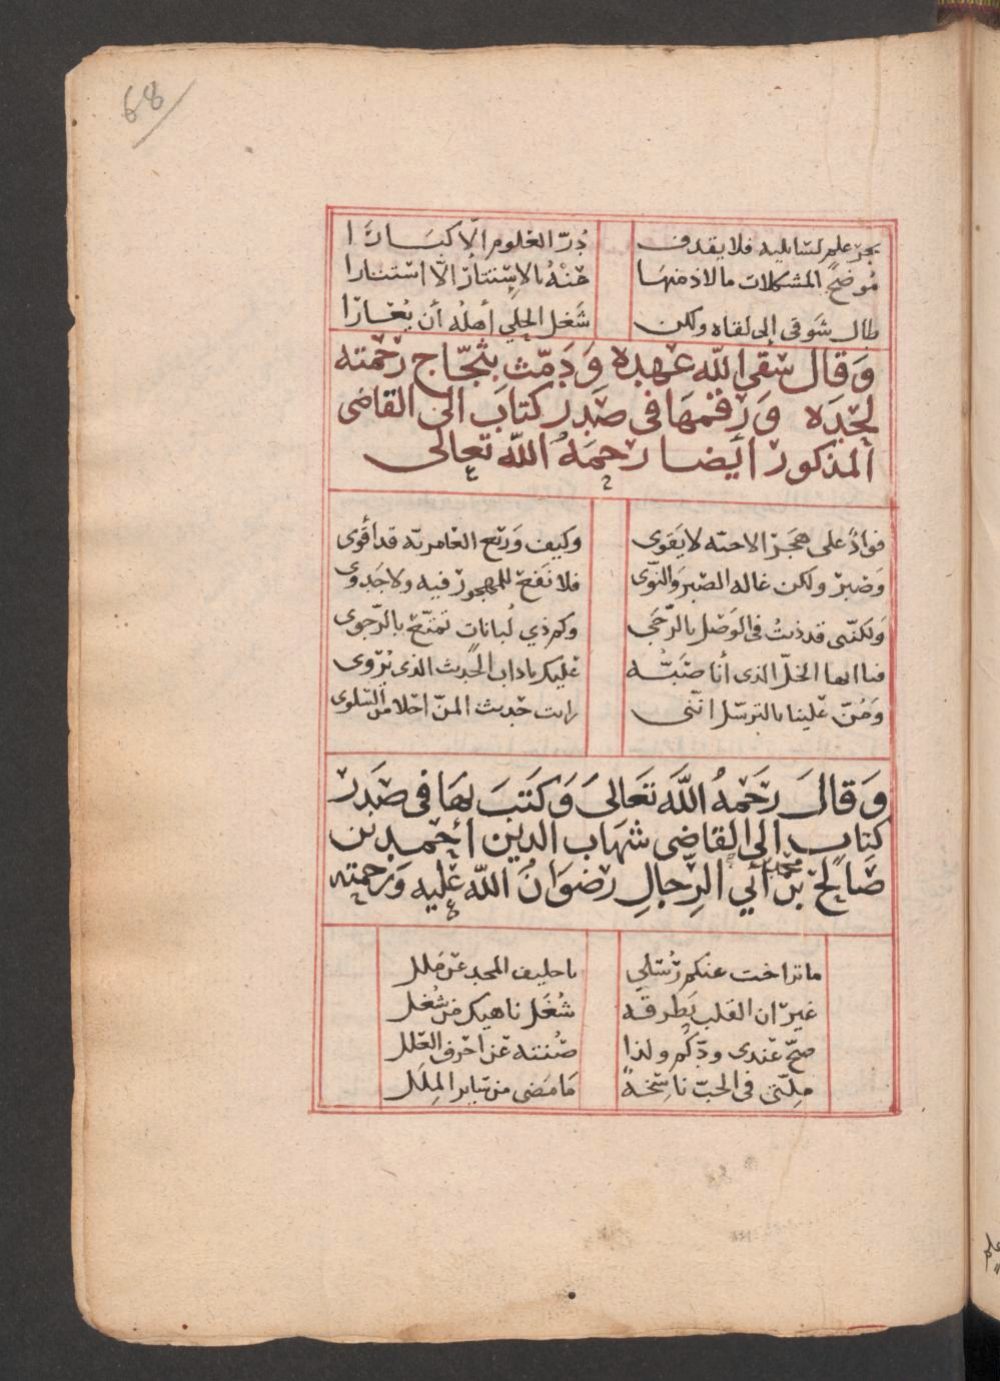 68
بحر علم لسائليه فلا يقذف درّ العلوم إلا كبارا
موضح المشكلات ما لاذ منها عنه بالاستتار إلا استنارا
طال شوقي إلى لقاه ولكن شغل الحلي أهله أن يعارا
وقال سقى الله عهده ودمّث بثجّاج رحمته
لحده ورقمها في صدر كتاب الى القاضي
المذكور أيضا رحمه الله تعالى
فواد على هجر الاحبه لا يقوى وكيف وربع العامرية قد أقوى
وصبر ولكن غاله الصبر والنّوى فلا نفع للمهجور فيه ولا جدوى
ولكنّى قد ذبت في الوصل بالرّجى وكم ذي لبانات تمتّع بالرّجوى
فيا ايها الخلّ الذي أنا صبّه عليك باداب الحديث الذي يروى
ومنّ علينا بالترسّل انّني رايت حديث المنّ احلا من السّلوى
وقال رحمه الله تعالى وكتب بها في صدر
كتاب إلى القاضي شهاب الدين أحمد بن
صالح بن محمد أبي الرجال رضوان الله عليه ورحمته
ما تراخت عنكم رسلي يا حليف المجد عن ملل
غير ان القلب يطرقه شغل ناهيك من شغل
صحّ عندي ودّكم ولذا صنته عن احرف العلل
ملّتي في الحبّ ناسخة ما مضى من سائر الملل